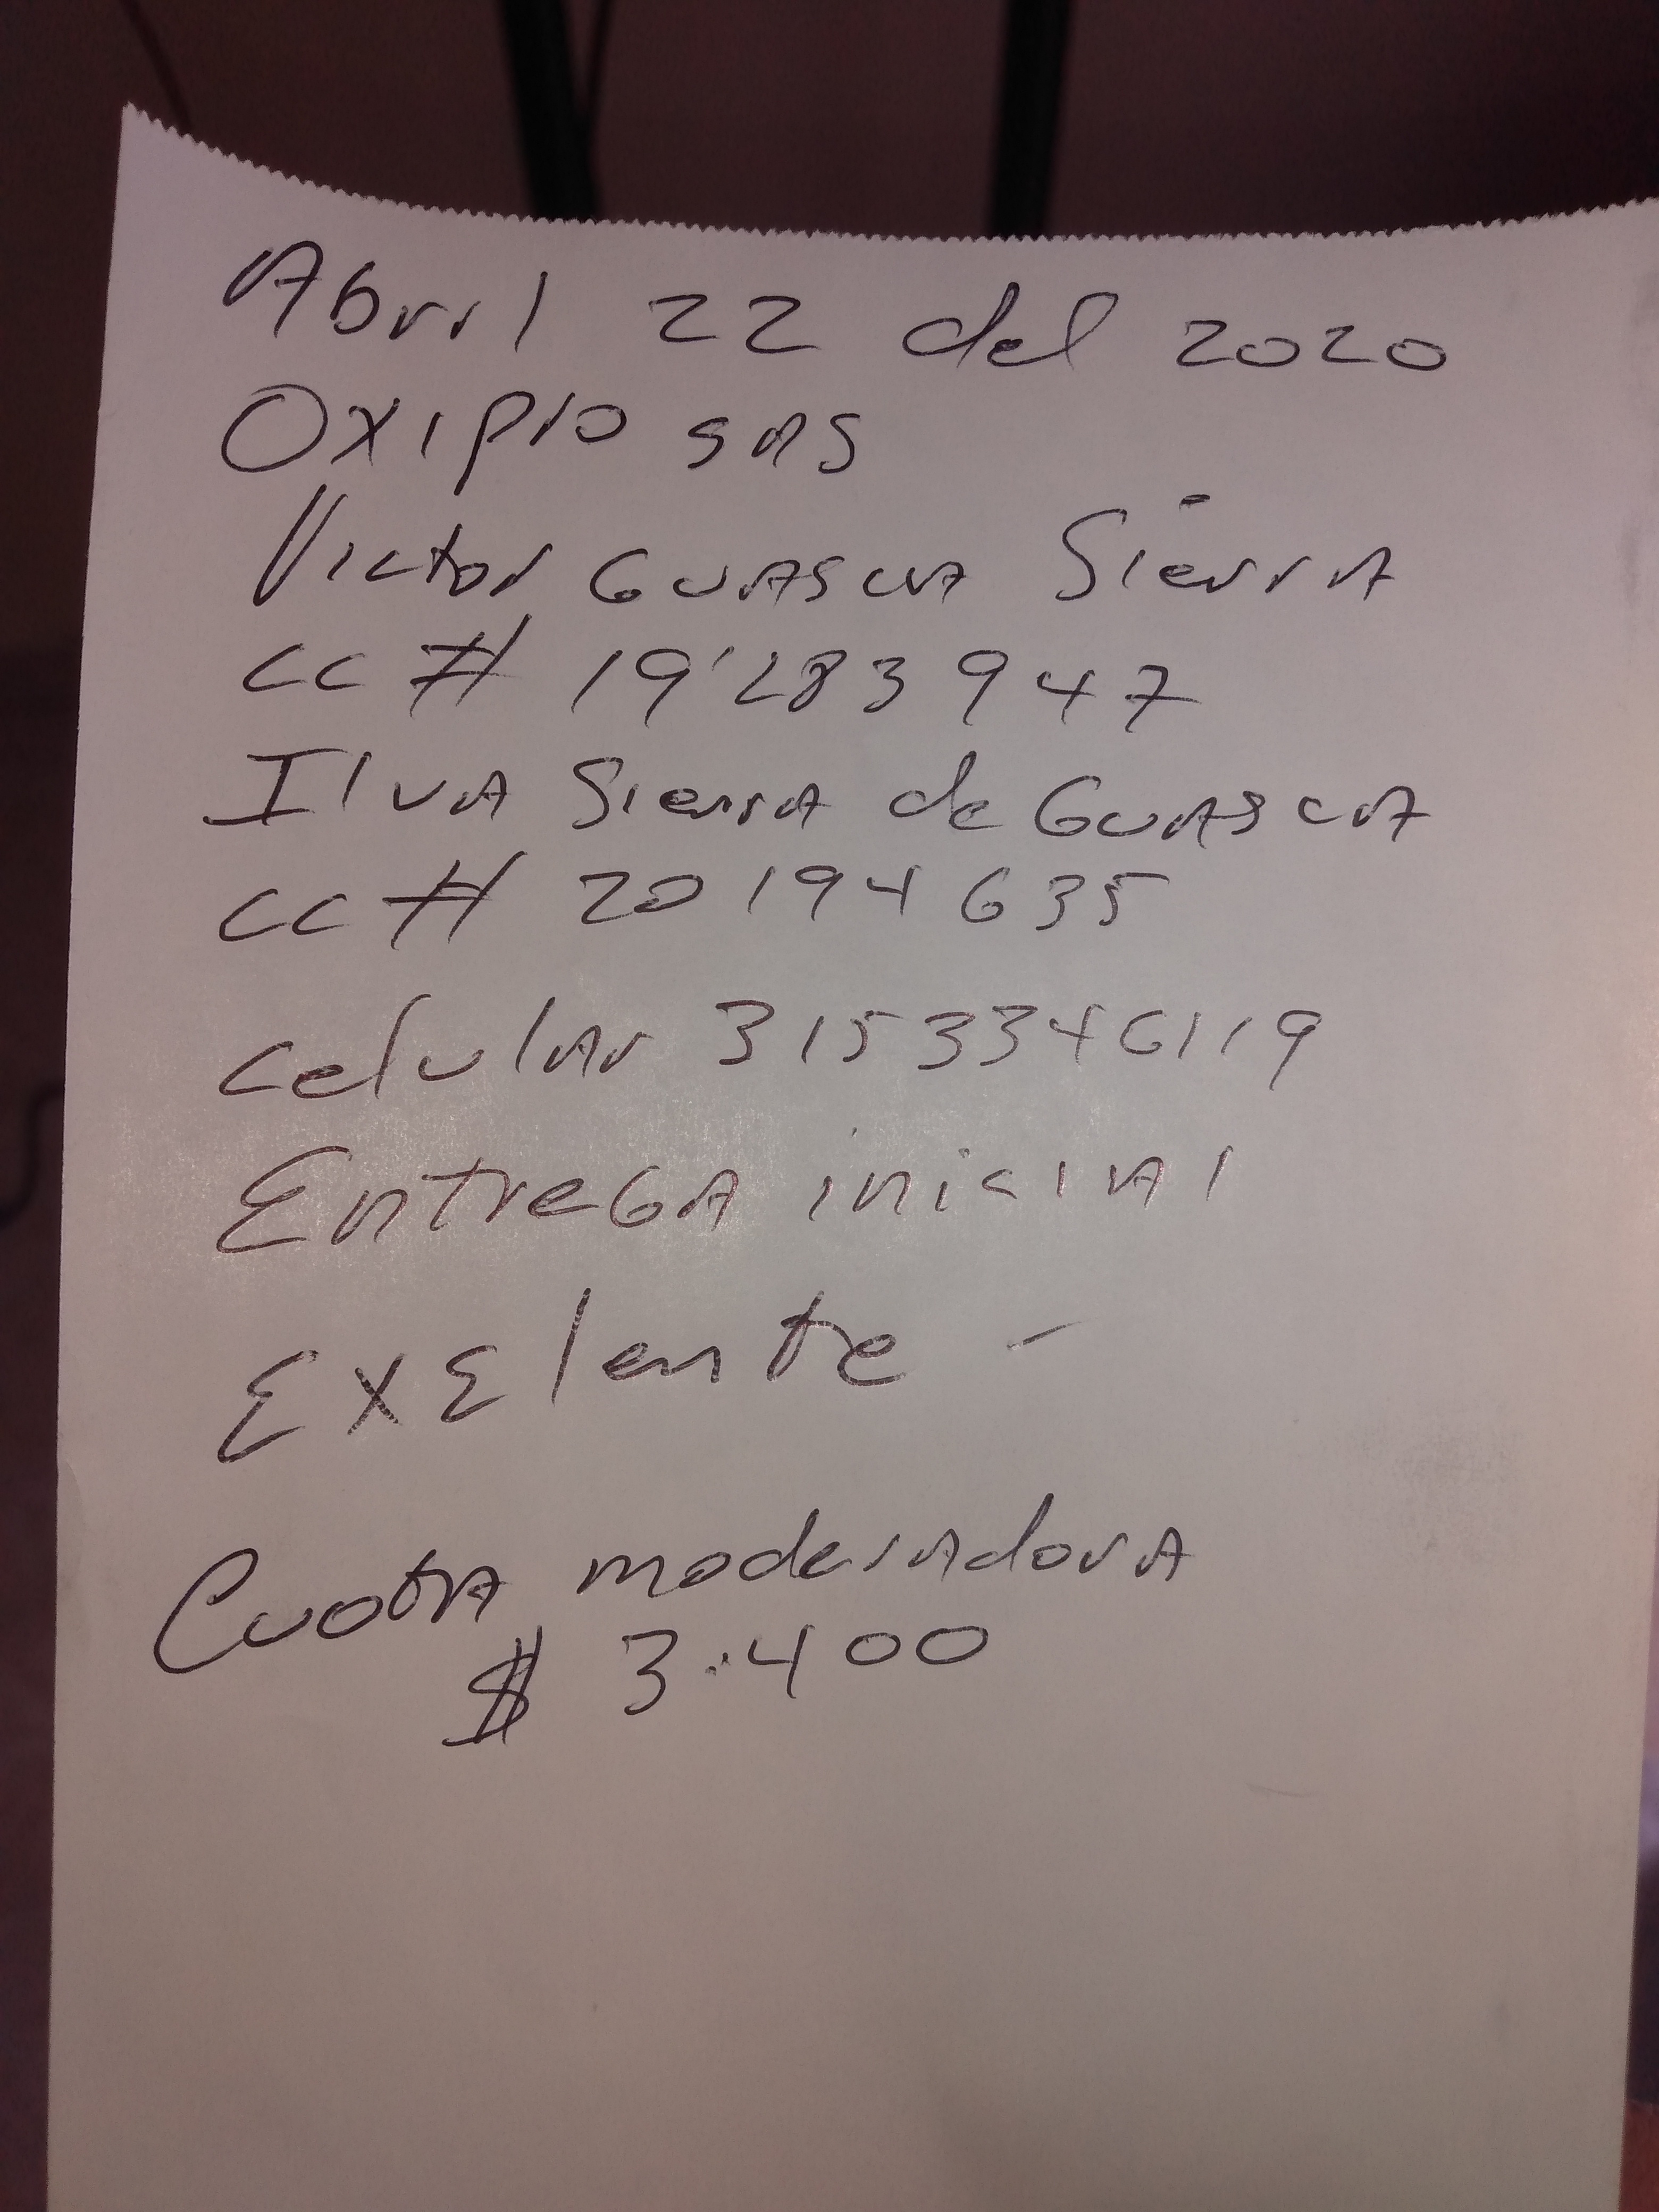 Abril 22 del 2020
Oxipro SAS
Victor Guasca Sierra
CC # 19'283947
Ilva Sierra de Guasca
CC # 20194635
Celular 3153346119
Entrega inicial
Exelente -
Cuota moderadora
$ 3.400